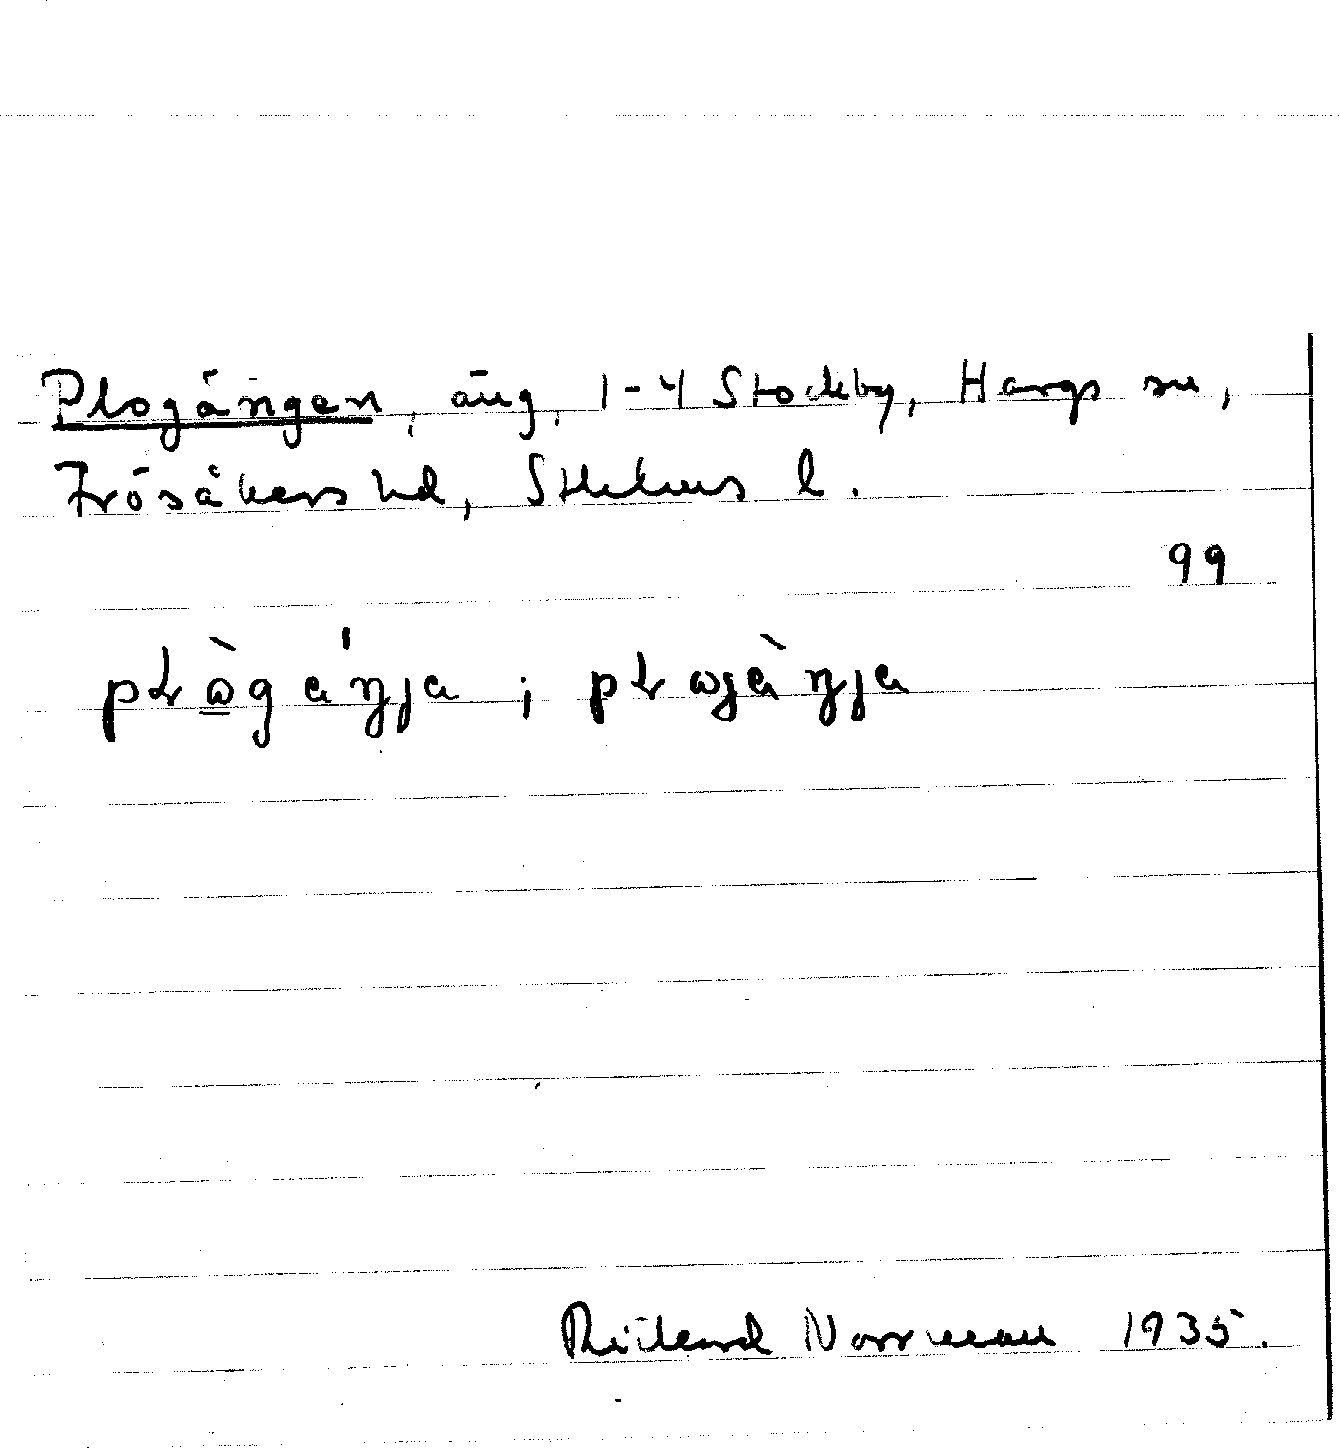 Plogängen, äng, 1-4 Stockby, Hargs sn,
Frösåkers hd, Sthlms l.
99
pɫò̱gáŋja; pɫogàŋja
Rickard Norrman 1935.